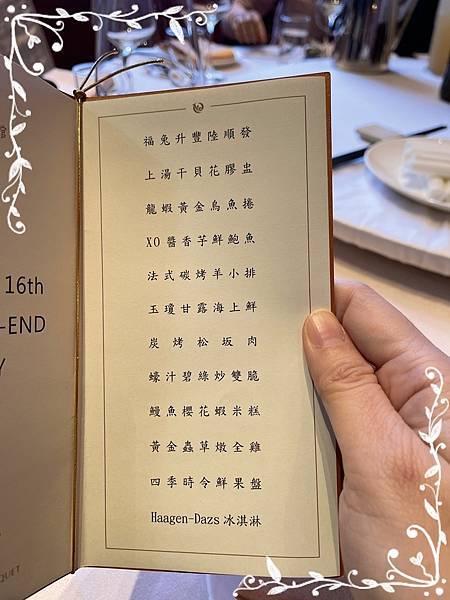 16th
-END
福兔升豐陸順發
上湯干貝花膠盅
龍蝦黃金烏魚捲
XO醬香芋鮮鮑魚
法式碳烤羊小排
玉瓊甘露海上鮮
炭烤松坂肉
蠔汁碧綠炒雙脆
鰻魚櫻花蝦米糕
黃金蟲草燉全雞
四季時令鮮果盤
Haagen-Dazs冰淇淋